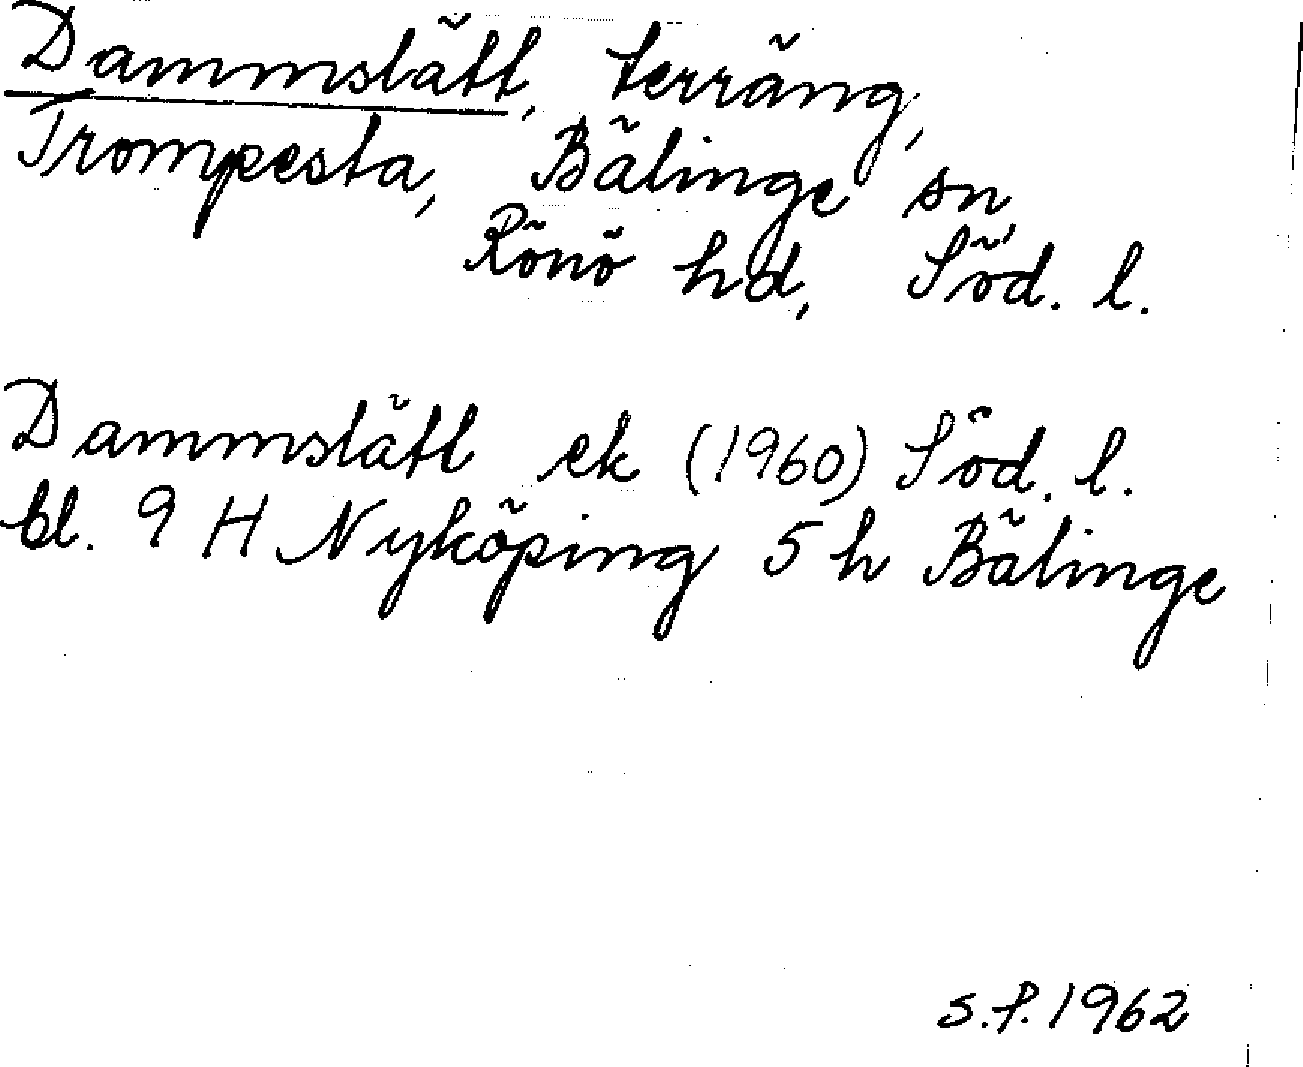 Dammslätt, terräng,
Trompesta, Bälinge sn,
Rönö hd, Söd. l.
Dammslätt ek (1960) Söd. l.
bl. 9 H Nyköping 5 h Bälinge
S.P. 1962